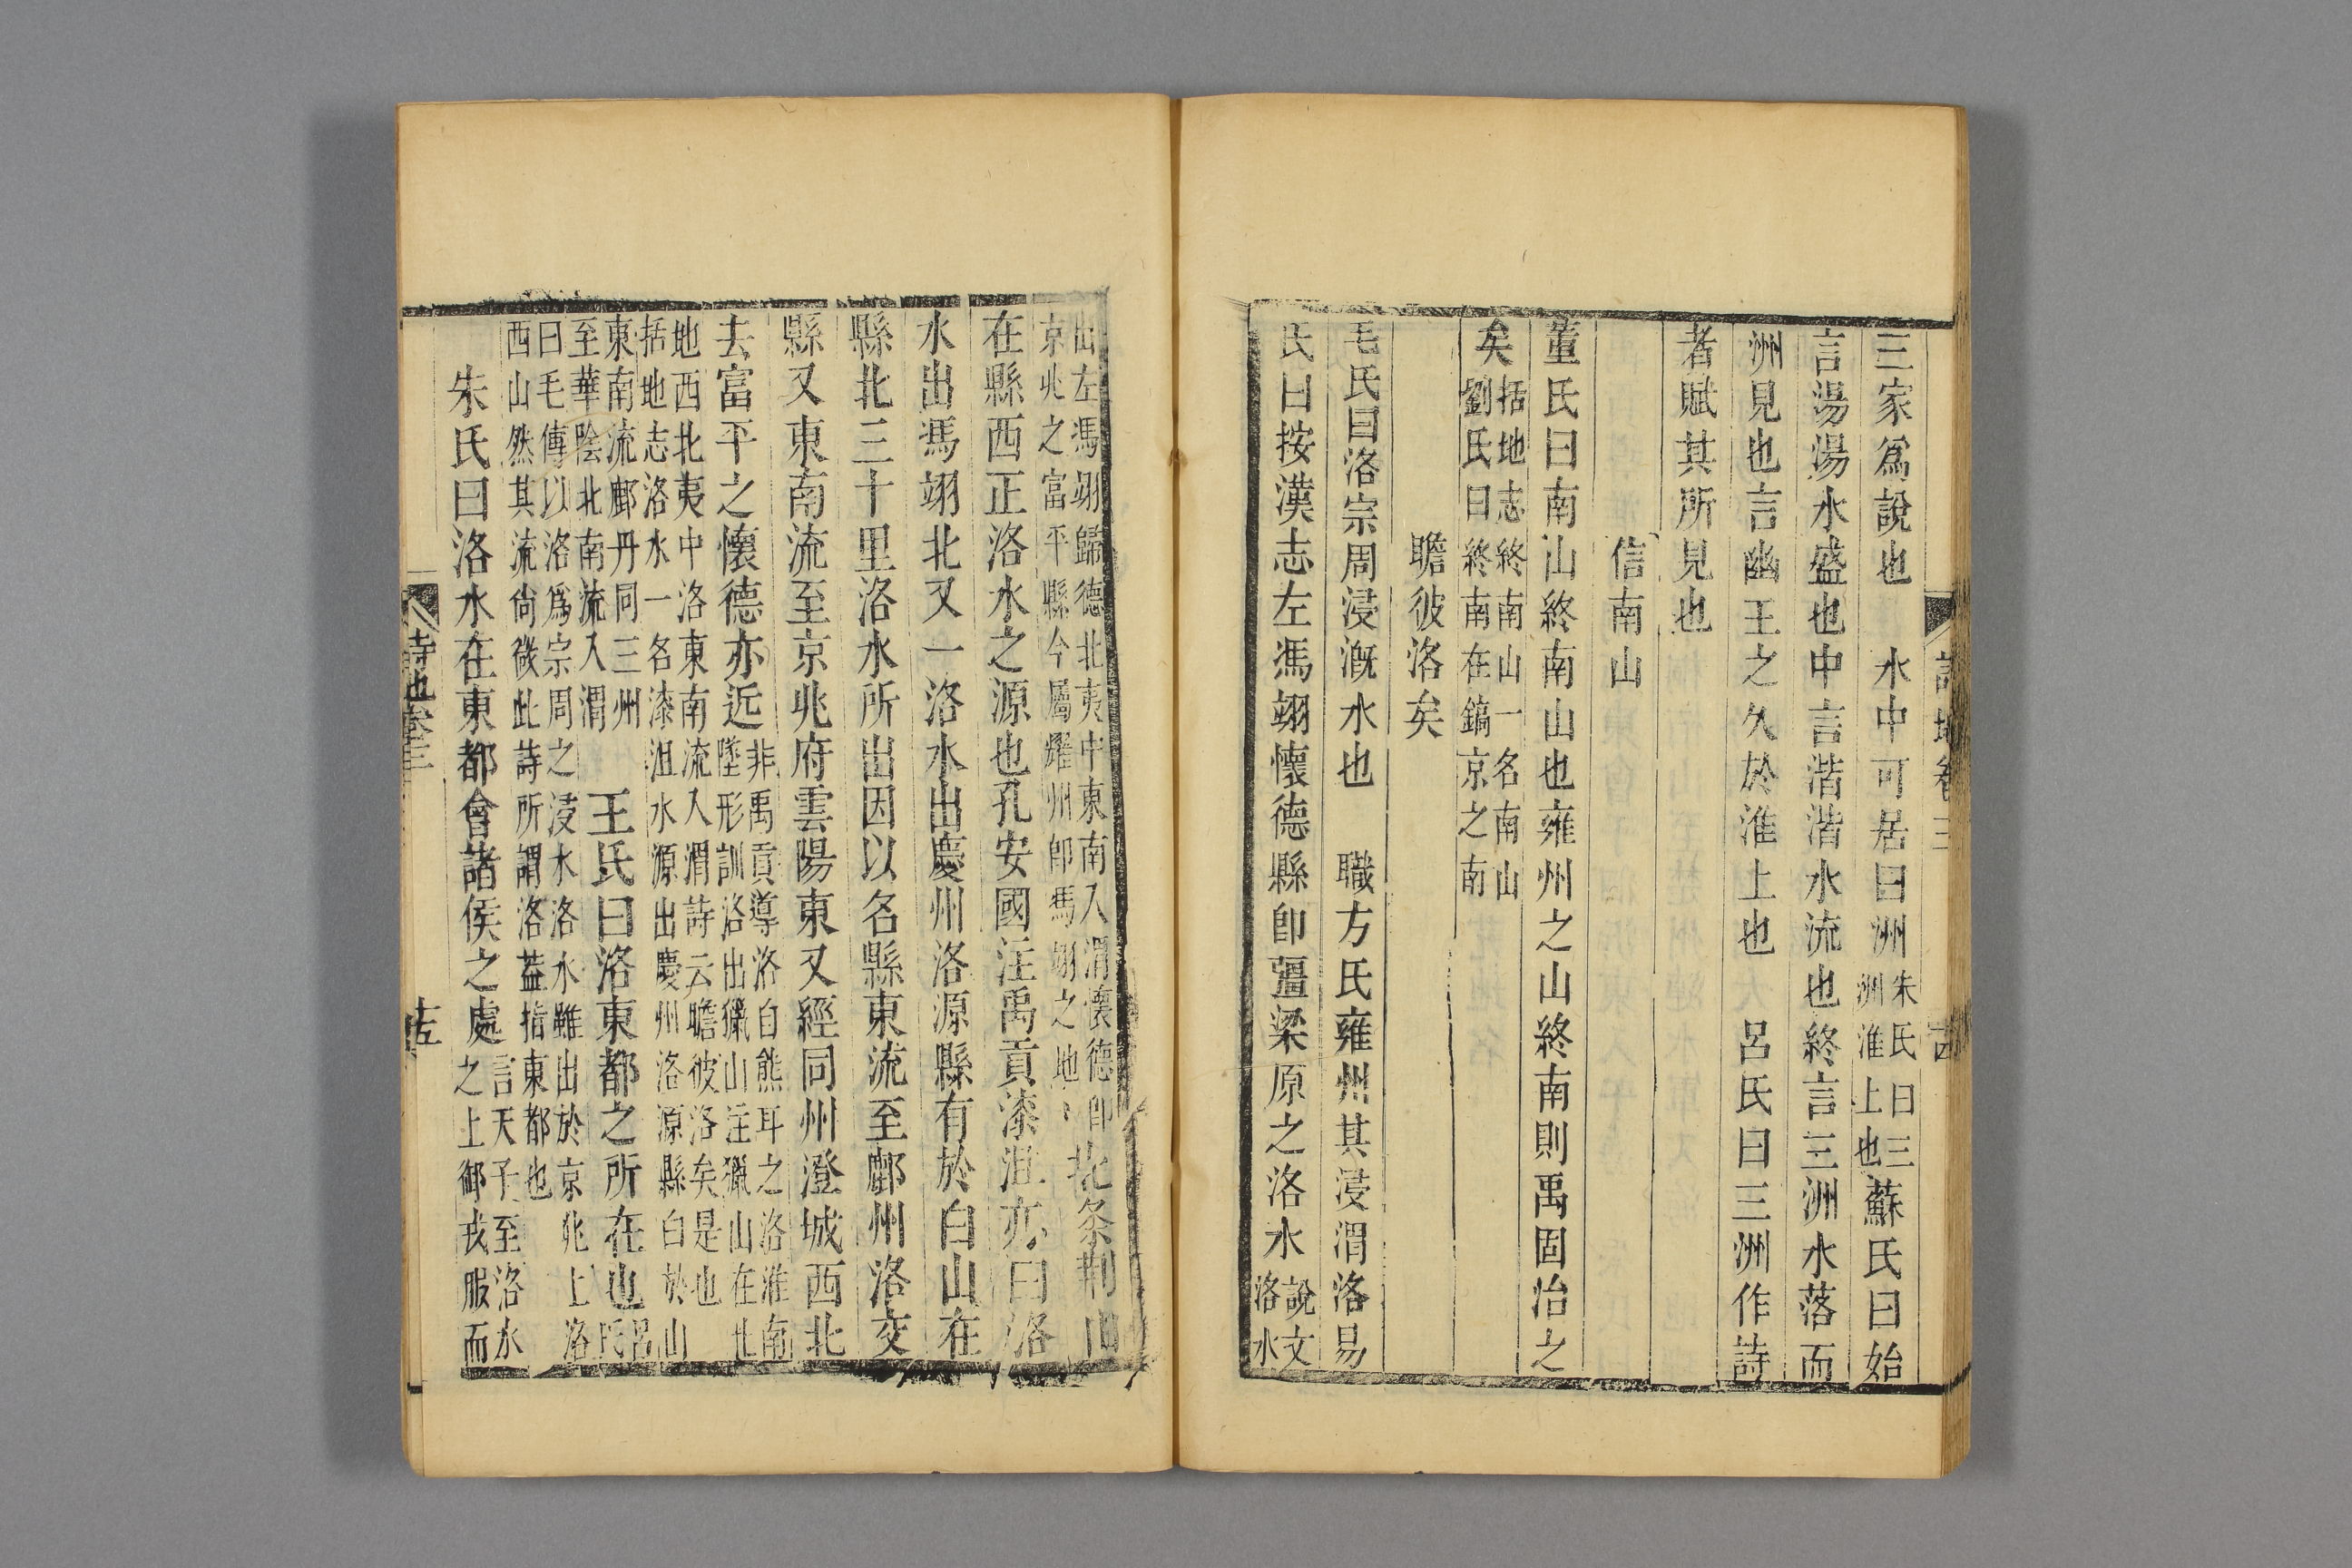 三家爲說也　水中可居曰洲朱氏曰三洲淮上也蘇氏曰始
言湯湯水盛也中言湝湝水流也終言三洲水落而
洲見也言幽王之久於淮上也　呂氏曰三洲作詩
者賦其所見也
信南山
董氏曰南山終南山也雍州之山終南則禹固治之
矣括地志終南山一名南山劉氏曰終南在鎬京之南
瞻彼洛矣
毛氏曰洛宗周浸漑水也　職方氏雍州其浸渭洛易
氏曰按漢志左馮翊懷德縣卽彊梁原之洛水說文洛水
出左馮翊歸德北夷中東南入渭懷德卽京兆之富平縣今屬耀州卽馮翊之地北条荆山
在縣西正洛水之源也孔安國注禹貢漆沮亦曰洛
水出馮翊北又一洛水出慶州洛源縣有於白山在
縣北三十里洛水所出因以名縣東流至鄜州洛交
縣又東南流至京兆府雲陽東又經同州澄城西北
去富平之懷德亦近非禹貢導洛自熊耳之洛淮南墜形訓洛出獵山注獵山在北
地西北夷中洛東南流入渭詩云瞻彼洛矣是也括地志洛水一名漆沮水源出慶州洛源縣白於山
東南流鄜丹同三州至華陰北南流入渭　王氏曰洛東都之所在也呂氏
曰毛傳以洛爲宗周之浸水洛水雖出於京兆上洛西山然其流尙微此詩所謂洛蓋指東都也
朱氏曰洛水在東都會諸侯之處言天子至洛水之上御戎服而
詩地卷三
十五